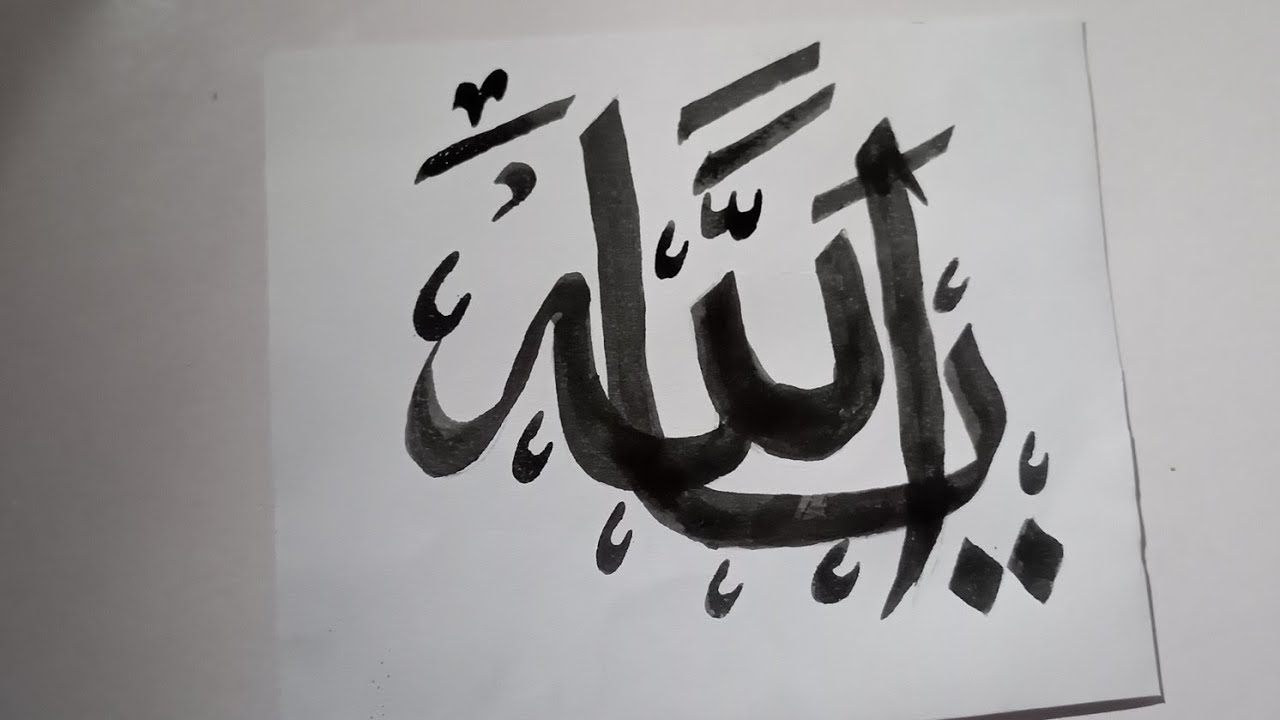 يَا اللَّهُ